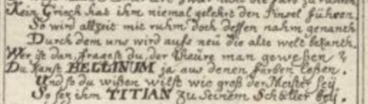 Kein Griech hat ihm niemal gelehrt den Pinsel führen.
So wird allzeit mit ruhm doch dessen nahm genanth
Durch dem uns wird aufs neü die alte welt bekanth.
Wer ist dan fragest du der theüre man geweßen?
Du kanst BELLINUM ja aus denen farben leßen.
Und so du wißen wilst wie groß der Meister seij
So sez ihm TITIAN zu seinem Schüller beij